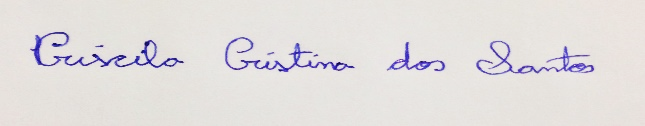 Priscila Cristina dos Santos